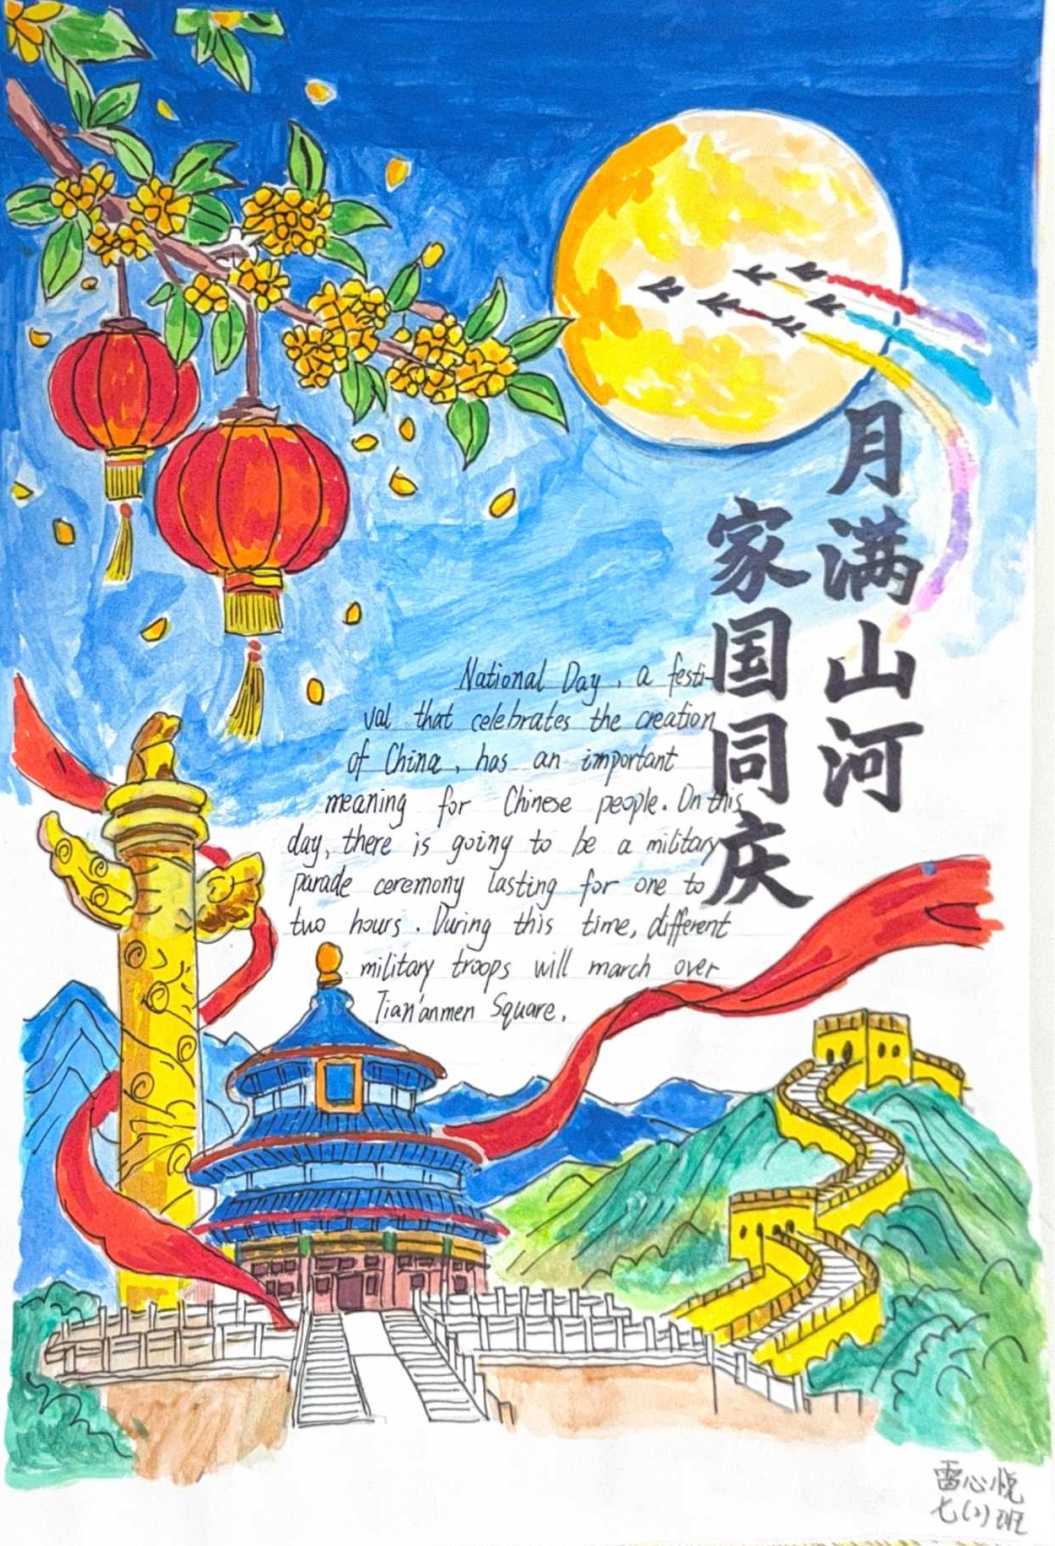 月满山河
家国同庆
National Day, a festi-
val that celebrates the creation
of China, has an important
meaning for Chinese people. On this
day, there is going to be a military
parade ceremony lasting for one to
two hours. During this time, different
military troops will march over
Tian'anmen Square.
雷心悦
七(2)班